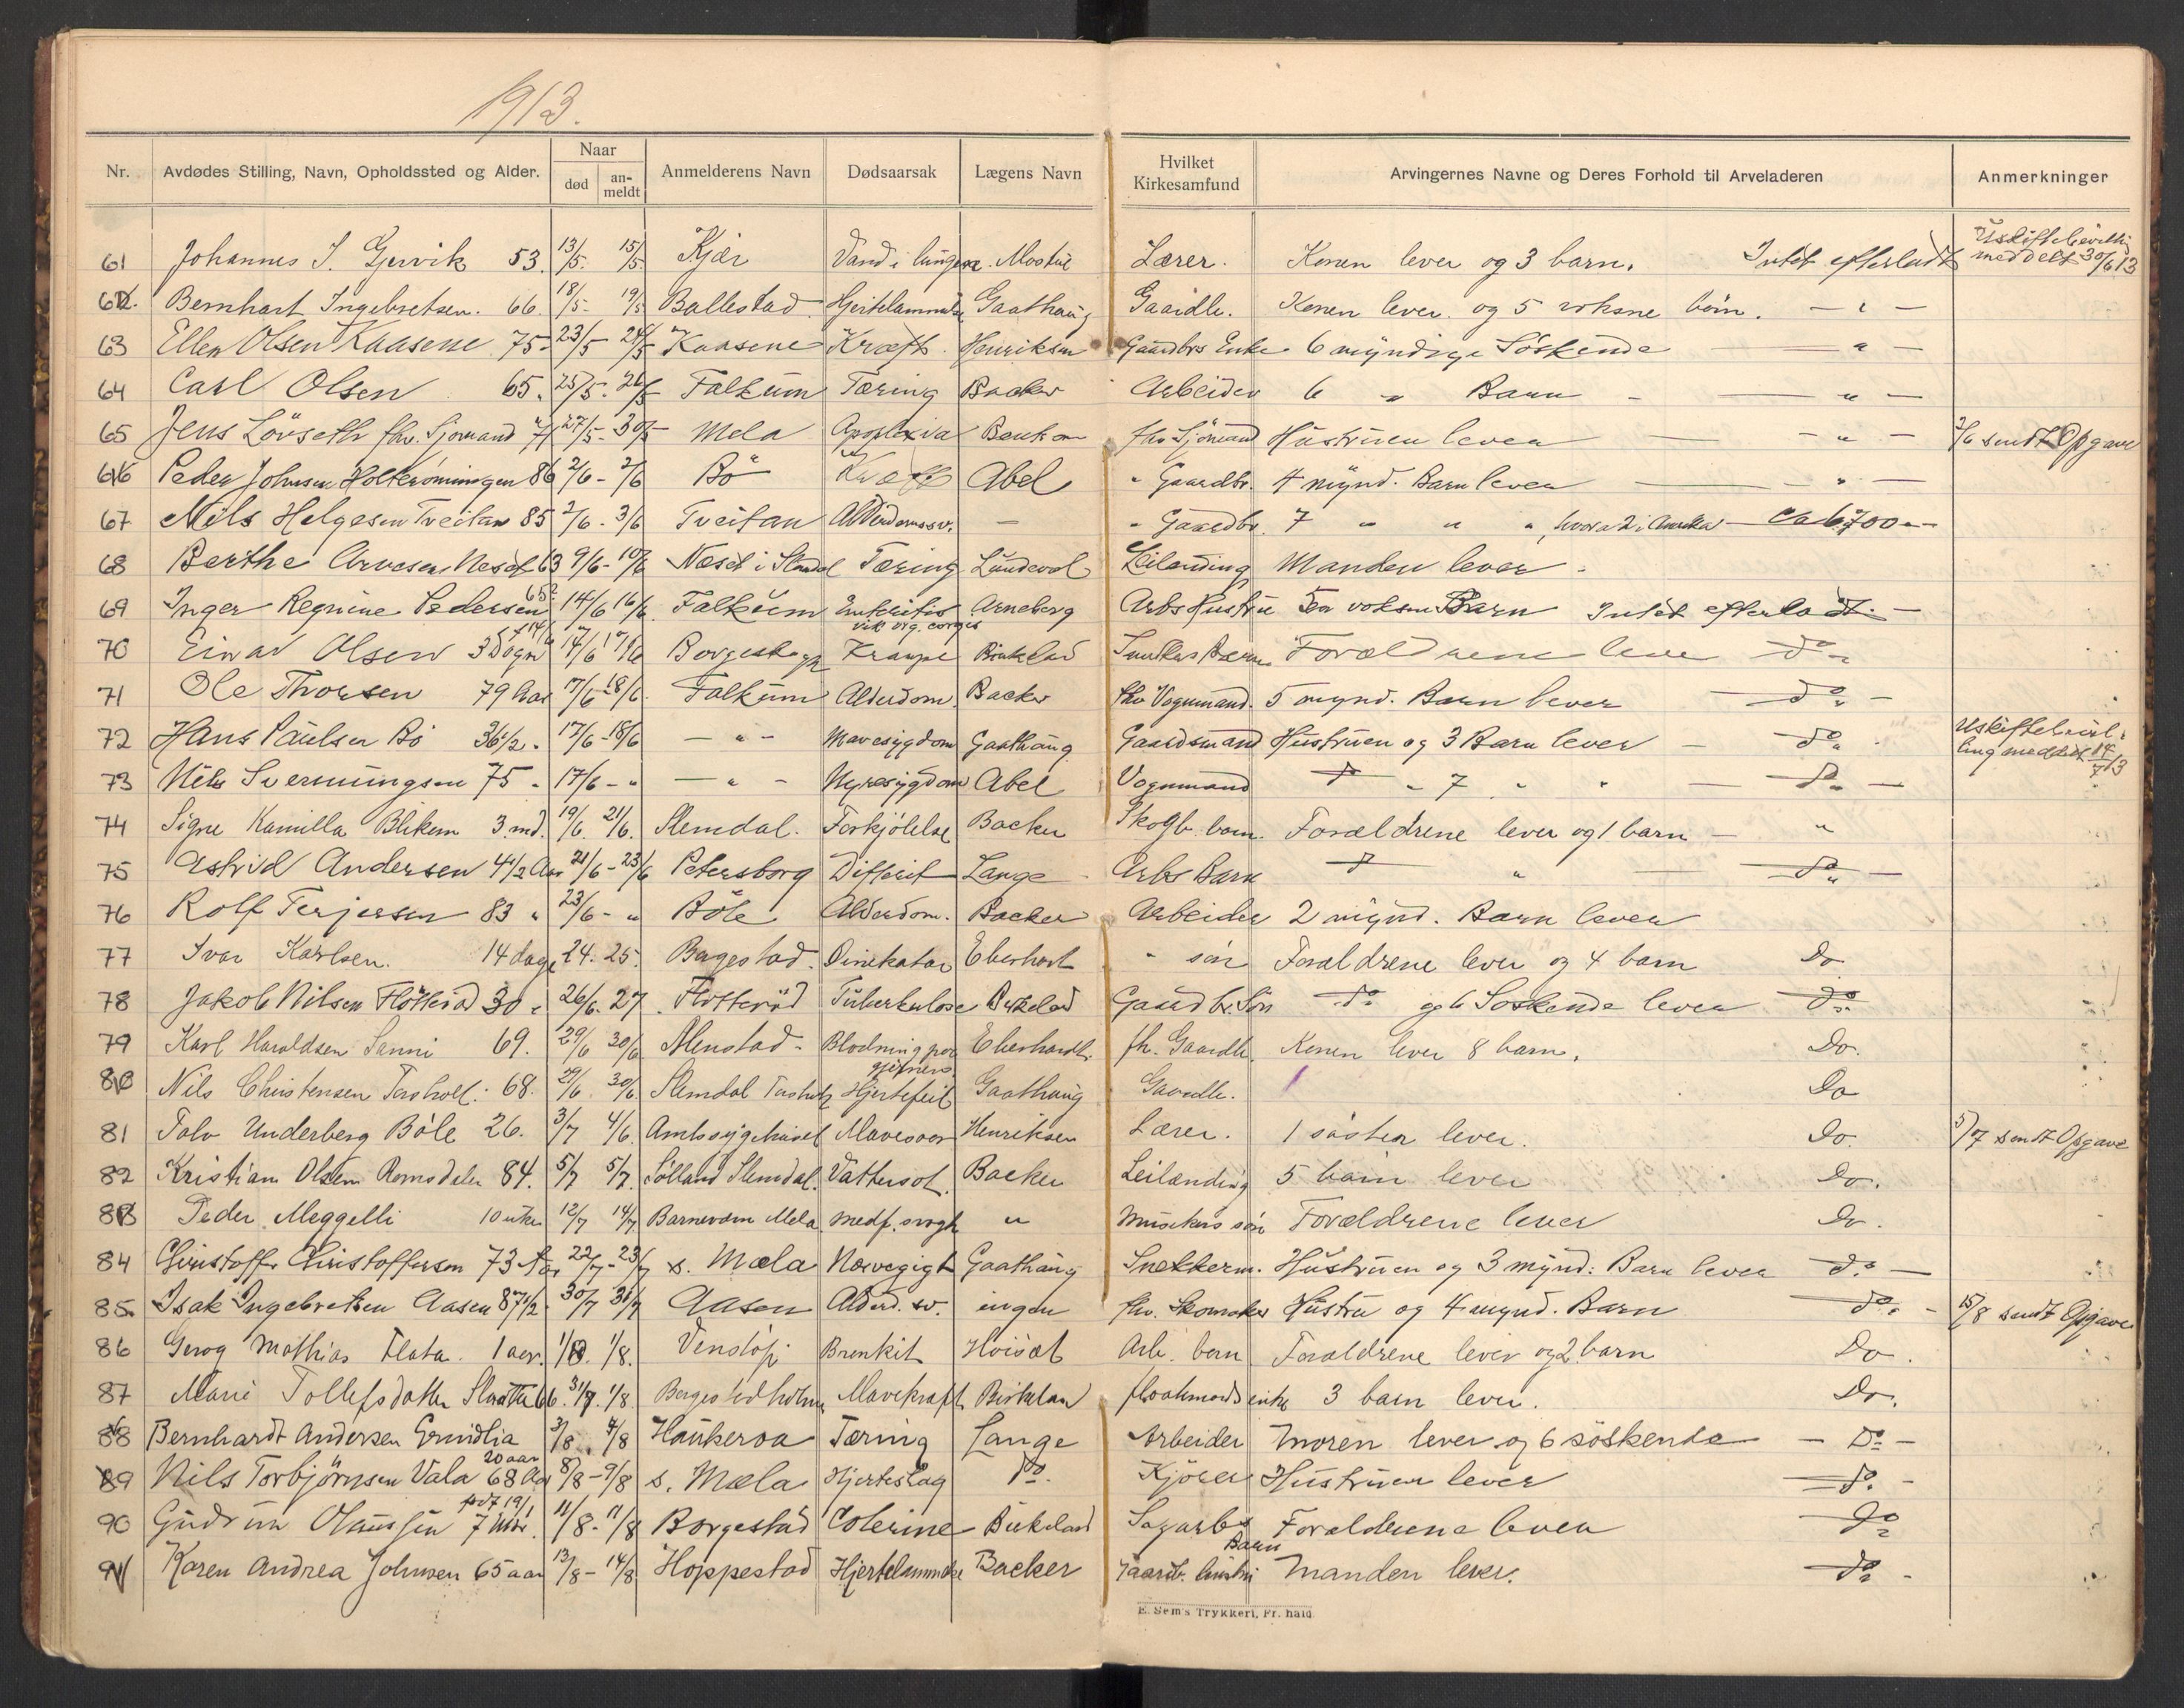 1913.
Nr. Avdødes Stilling, Navn, Opholdssted og Alder. Naar død an-meldt Anmelderens Navn Dødsaarsak Lægens Navn Hvilket Kirkesamfund Arvingernes Navne og Deres Forhold til Arveladeren Anmerkninger
61 Johannes J. Gjervik 53. 13/5. 15/5. Kjær Vand i lungene. Lærer. Konen lever og 3 barn. Intet efterladt meddelt 30/6 13
62. Bernhart Ingebretsen. 66. 18/5- 19/5 Ballestad Hjertelammelse Gaathaug Gaardb. Konen lever. og 5 voksne børn. — " —
63 Ellen Olsen Kaasene 75- 23/5- 24/5 Kaasene Kræft. Henriksen Gaardbrs Enke 6 myndige Söskende — " —
64 Carl Olsen 65. 25/5- 26/5 Falkum Tæring Backer Arbeider 6 " Barn — " —
65 Jens Lövseth fhv. Sjömand 71 27/5- 30/5 Mela Apoplexia fhv Sjömand Hustruen lever — " — 2/6 sendt Opgave
66 Peder Johnsen 86 2/6- 2/6 Bö Kræft Abel " Gaardbr. 4 mynd. Barn lever — " —
67 Nils Helgesen Treitan 85 2/6- 3/6 Treitan Alderdomssv. — " Gaardbr. 7 " " ", hvorav 2 i Amerika — Ca 6700 —
68 Berthe Næset 63 9/6- 10/6 Næset i Tæring Lundevol Leilænding Manden lever -
69 Inger Regnine Pedersen 65 14/6 16/6. Falkum Arneberg Arbs Hustru voksen Barn Intet efterladt. —
70 Einar Olsen 3 Døgn 17/6 Borgestad Krampe Birkeland Barn Forældrene lever do
71 Ole Thorsen 79 Aar 17/6- 18/6. Falkum Alderdom. Backer fhv Vognmand. 5 mynd. Barn lever — do —
72 Hans Paulsen Bö 36 1/2 " 17/6- 18/6 — " — Mavesygdom Gaathaug Gaardsmand Hustruen og 3 Barn lever — do meddelt 14/7 13
73 Nils Svennungsen 75 " 17/6 - " — " — Nyresygdom Abel Vognmand — " 7 " " — do —
74 Signe Kamilla Blikem 3. md. 19/6. 21/6. Slemdal. Forkjölelse Backer Skogb. barn. Forældrene lever og 1 barn — "
75 Astrid Andersen 4 1/2 Aar 21/6- 23/6 Petersborg Difterit Lange Arbs Barn " — do —
76 Rolf Terjersen 83 " 23/6 - " Böle Alderdom. Backer Arbeider 2 mynd. Barn lever
77 Ivar Karlsen. 14 dage 24. 25. Borgestad. Eberhart " sön Forældrene lever og 4 barn Do
78 Jakob Nilsen Flötteröd 30 " 26/6. 27 Flötteröd Tuberkulose Birkeland Gaardbr. Sön do og 6 Søskende lever do
79 Karl Haraldsen Sanni 69. 29/6 30/6 Menstad. Blødning paa hjernen Eberhardt. fh. Gaardb. Konen lever 8 barn. Do.
80 Nils Christensen Tasholt. 68. 29/6 30/6 Slemdal Tasholt Hjertefeil Gaathaug Gaardb. Do
81 Talv Underberg Böle 26. 3/7 4/6. Amtssygehuset Mavesaar Henriksen Lærer. 1 søster lever. Do. 5/7 sendt Opgave
82 Kristian Olsen Romsdalen 84. 5/7 5/7. Sölland Slemdal. Vattersot. Backer Leilænding 5 barn lever Do.
83 Peder Meggelli 10 uker 12/7 14/7 Mela medf. svagh " Musikers sön Forældrene lever Do.
84 Christoffer Christoffersen 73 Aar 22/7- 23/7 s. Mæla Gaathaug Snekkerm. Hustruen og 3 mynd. Barn lever do —
85. Isak Ingebretsen Aasen 87 1/2. 30/7 31/7 Aasen Alderd. sv. ingen fhv. Skomaker Hustru og 4 mynd. Barn do. - 15/8 sendt Opgave
86 Gerog Mathias Flata. 1 aar. 1/8. 1/8. Venstöp Brenkit Höisæt Arb. barn Forældrene lever og 2 barn Do.
87 Marie Tollefsdatter 66. 31/7. 1/8. Mavekræft Birkelan enke 3 barn lever. Do.
88 Bernhardt Andersen Grindlia 20 aar 3/8. 4/8 Haukeroa Tæring Lange Arbeider Moren lever og 6 søskende — Do —
89 Nils Torbjörnsen Vala 68 Aar 8/8- 9/8 s. Mæla Hjerteslag do. Kjörer Hustruen lever do. -
90 Gudrun Olaussen født 19/1 7 Mdr. 11/8- 11/8 Borgestad Colerine Birkeland Sagarbs Barn Forældrene lever do
91 Karen Andrea Johnsen 65 aar 13/8- 14/8 Hoppestad Hjertelammelse Backer Gaardb. hustru Manden lever. do -
E. Sem's Trykkeri, Fr. hald